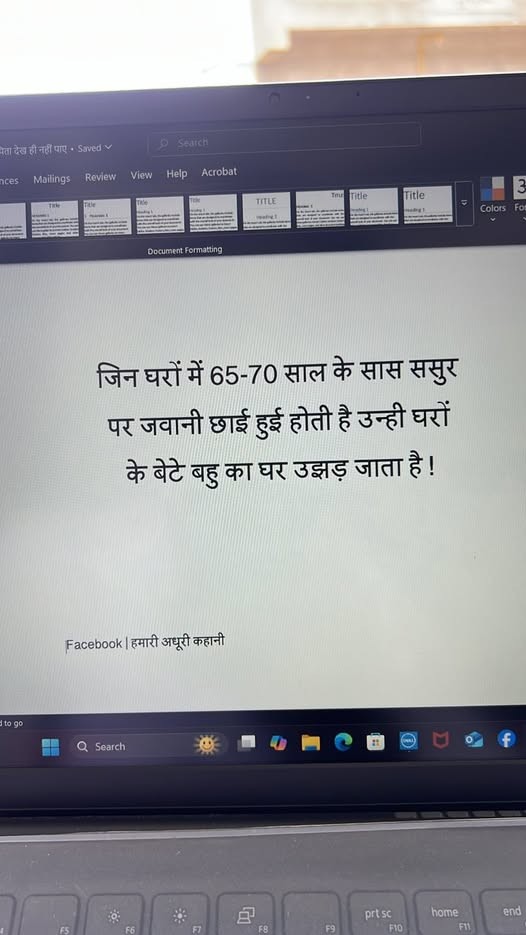 पिता देख ही नहीं पाए • Saved
Search
nces Mailings Review View Help Acrobat
Title Title Title Title TITLE Title Title Title
Colors
Document Formatting
जिन घरों में 65-70 साल के सास ससुर
पर जवानी छाई हुई होती है उन्ही घरों
के बेटे बहु का घर उझड़ जाता है !
Facebook | हमारी अधूरी कहानी
d to go
Search
DELL
F5 F6 F7 F8 F9 prt sc F10 home F11 end